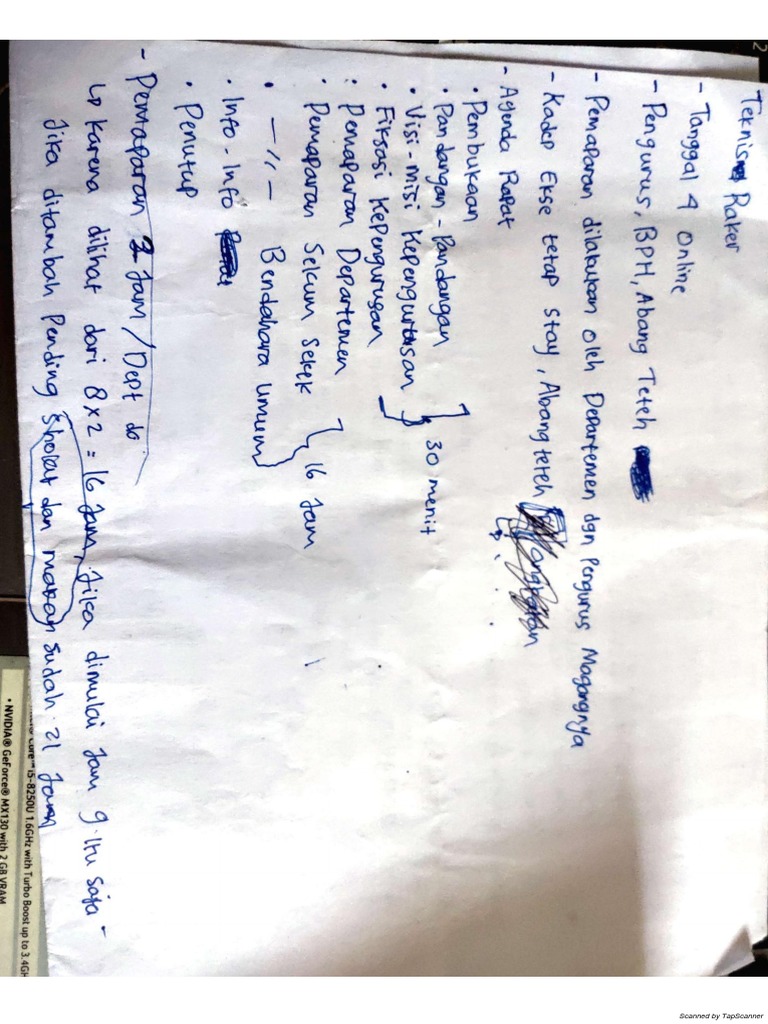 Teknis Raker
- Tanggal 4 Online
- Pengurus, BPH, Abang Teteh
- Pemaparan dilakukan oleh Departemen dgn Pengurus Magangnya
- Kadep Ekse tetap stay, Abang teteh
- Agenda Rapat
• Pembukaan
• Pandangan - Pandangan
• Visi - misi Kepengurusan
30 menit
• Fiksasi Kepengurusan
• Pemaparan Departemen
• Pemaparan Sekum Sekek
16 Jam
• —〃— Bendahara Umum
• Info - Info
• Penutup
- Pemaparan 2 Jam / Dept di
↳ Karena dilihat dari 8 x 2 = 16 Jam, Jika dimulai Jam 9 itu saja -
Jika ditambah Pending Sholat dan makan sudah 21 Jam
2
i5-8250U 1.6GHz with Turbo Boost up to 3.4GH
• NVIDIA® GeForce® MX130 with 2 GB VRAM
Scanned by TapScanner